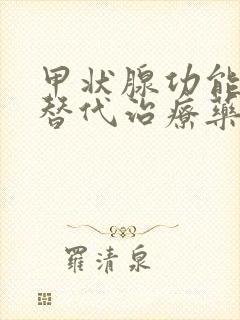 甲状腺功能
替代治療藥
羅清泉